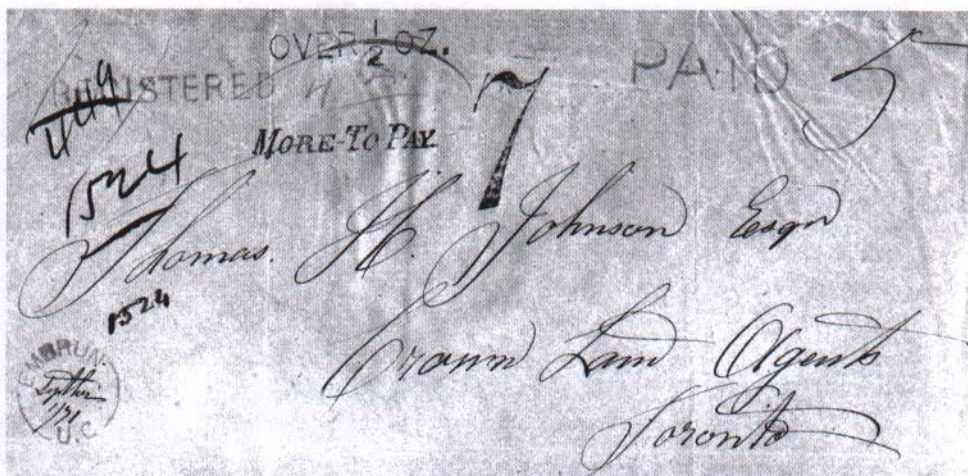 OVER 1/2 OZ.
REGISTERED
PAID 5
449
MORE-TO PAY
7
1524
Thomas. H. Johnson Esqr
1524
Crown Land Agent
Toronto
EMBRUN
U.C